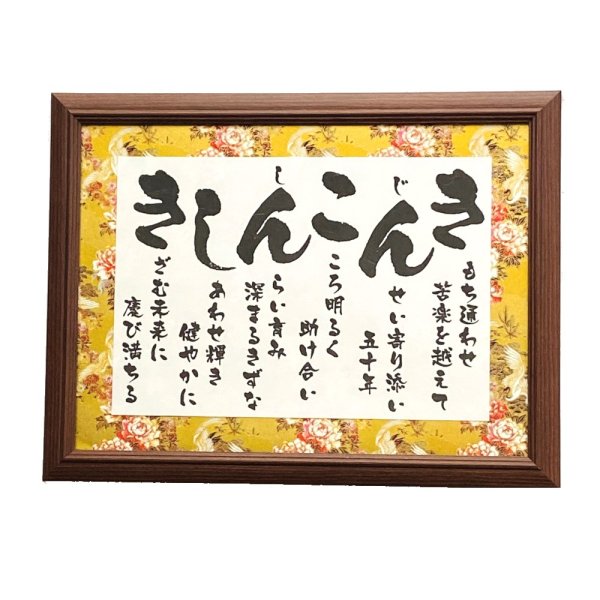 きもち通わせ
苦楽を越えて
じんせい寄り添い
五十年
こころ明るく
助け合い
しんらい育み
深まるきずな
しあわせ輝き
健やかに
きざむ未来に
慶び満ちる